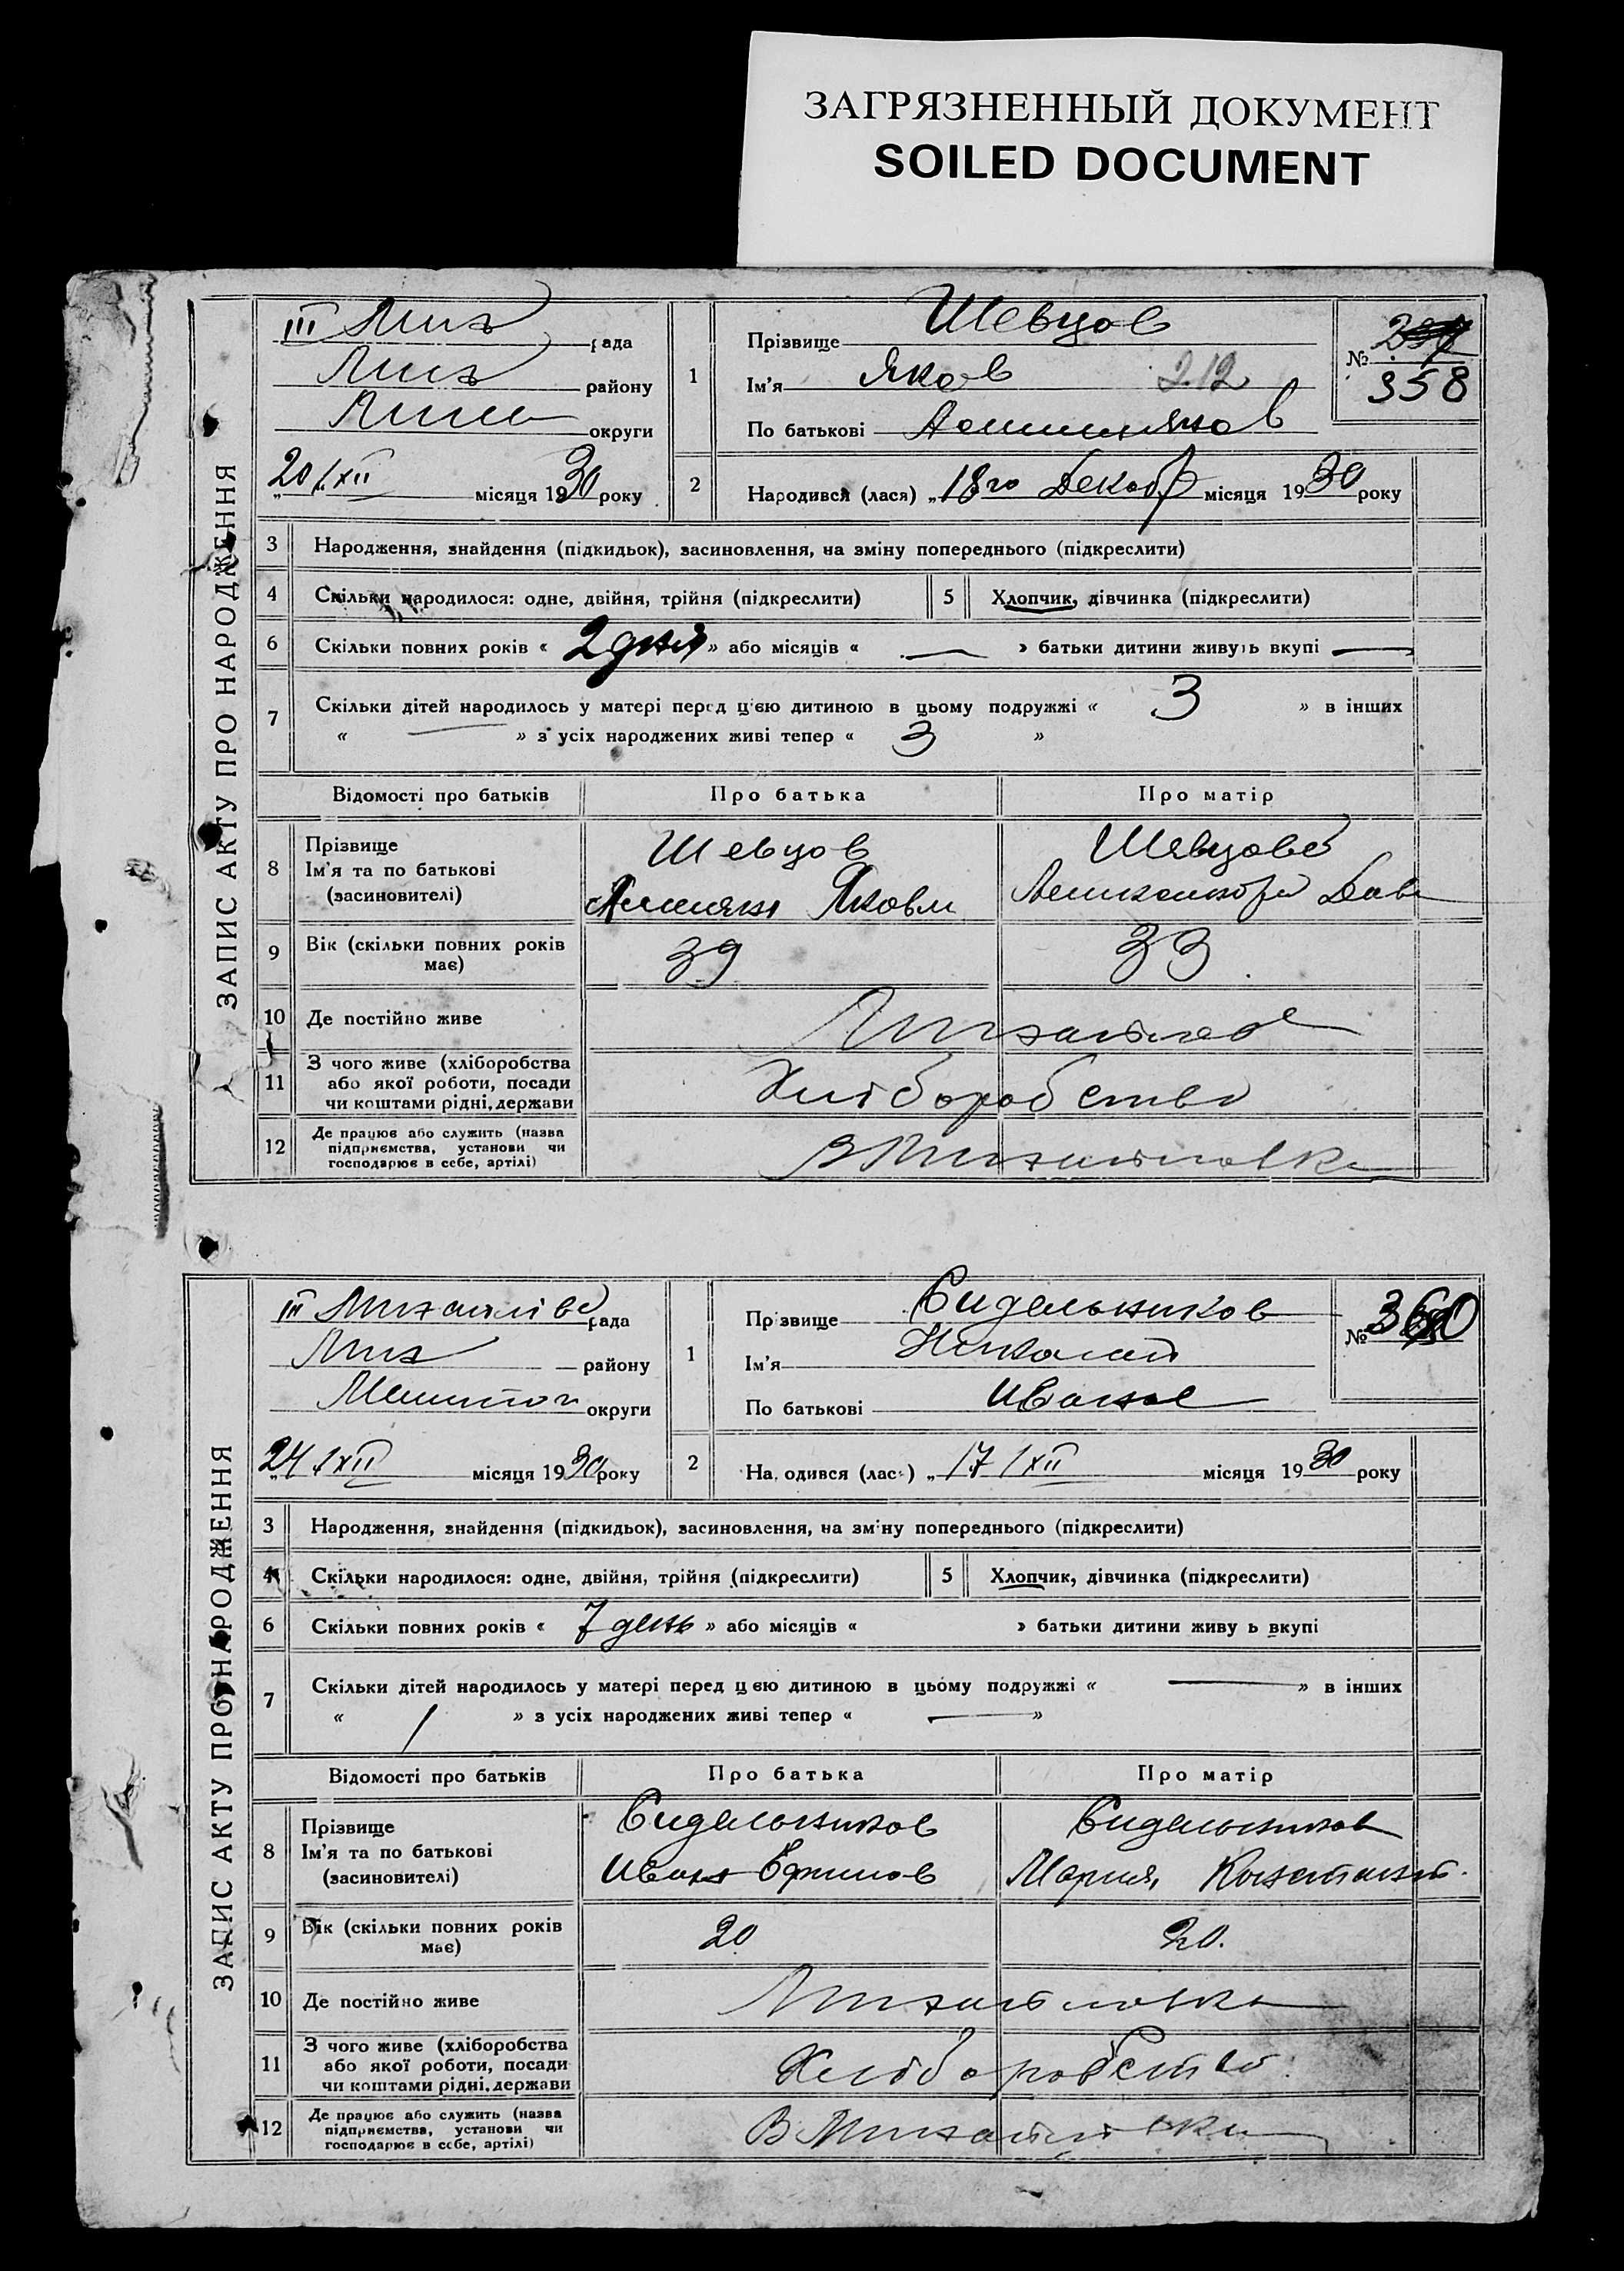 ЗАГРЯЗНЕННЫЙ ДОКУМЕНТ
SOILED DOCUMENT
ЗАПИС АКТУ ПРО НАРОДЖЕННЯ
III Мих рада
Мих району
округи
20/XII місяця 1930 року
1
Прізвище Шевцов
Ім'я Яков 212
По батькові
№ 358
2
Народився (лася) „18го Декабр місяця 1930 року
3 Народження, знайдення (підкидьок), засиновлення, на зміну попереднього (підкреслити)
4 Скільки народилося: одне, двійня, трійня (підкреслити)
5 Хлопчик, дівчинка (підкреслити)
6 Скільки повних років « 2 дня » або місяців « — » батьки дитини живуть вкупі —
7 Скільки дітей народилось у матері перед цією дитиною в цьому подружжі « 3 » в інших
« — » з усіх народжених живі тепер « 3 »
Відомості про батьків Про батька Про матір
8 Прізвище
Ім'я та по батькові
(засиновителі)
Шевцов
Яковл
Шевцова
Дав
9 Вік (скільки повних років має) 39 33
10 Де постійно живе
11 З чого живе (хліборобства або якої роботи, посади чи коштами рідні, держави
Хліборобство
12 Де працює або служить (назва підприємства, установи чи господарює в себе, артілі)
В Михайловке
ЗАПИС АКТУ ПРО НАРОДЖЕННЯ
III Михайлів рада
Мих району
Мелитоп округи
24/XII місяця 1930 року
1
Прізвище Сидельников
Ім'я Николай
По батькові Иванов
№ 360
2
Народився (лася) „17/XII місяця 1930 року
3 Народження, знайдення (підкидьок), засиновлення, на зміну попереднього (підкреслити)
4 Скільки народилося: одне, двійня, трійня (підкреслити)
5 Хлопчик, дівчинка (підкреслити)
6 Скільки повних років « 7 день » або місяців « » батьки дитини живуть вкупі
7 Скільки дітей народилось у матері перед цією дитиною в цьому подружжі « — » в інших
« / » з усіх народжених живі тепер « — »
Відомості про батьків Про батька Про матір
8 Прізвище
Ім'я та по батькові
(засиновителі)
Сидельников
Иван Ефимов
Сидельников
Мария Констант.
9 Вік (скільки повних років має) 20 20.
10 Де постійно живе Михайловка
11 З чого живе (хліборобства або якої роботи, посади чи коштами рідні, держави
Хліборобство
12 Де працює або служить (назва підприємства, установи чи господарює в себе, артілі)
В Михайловки